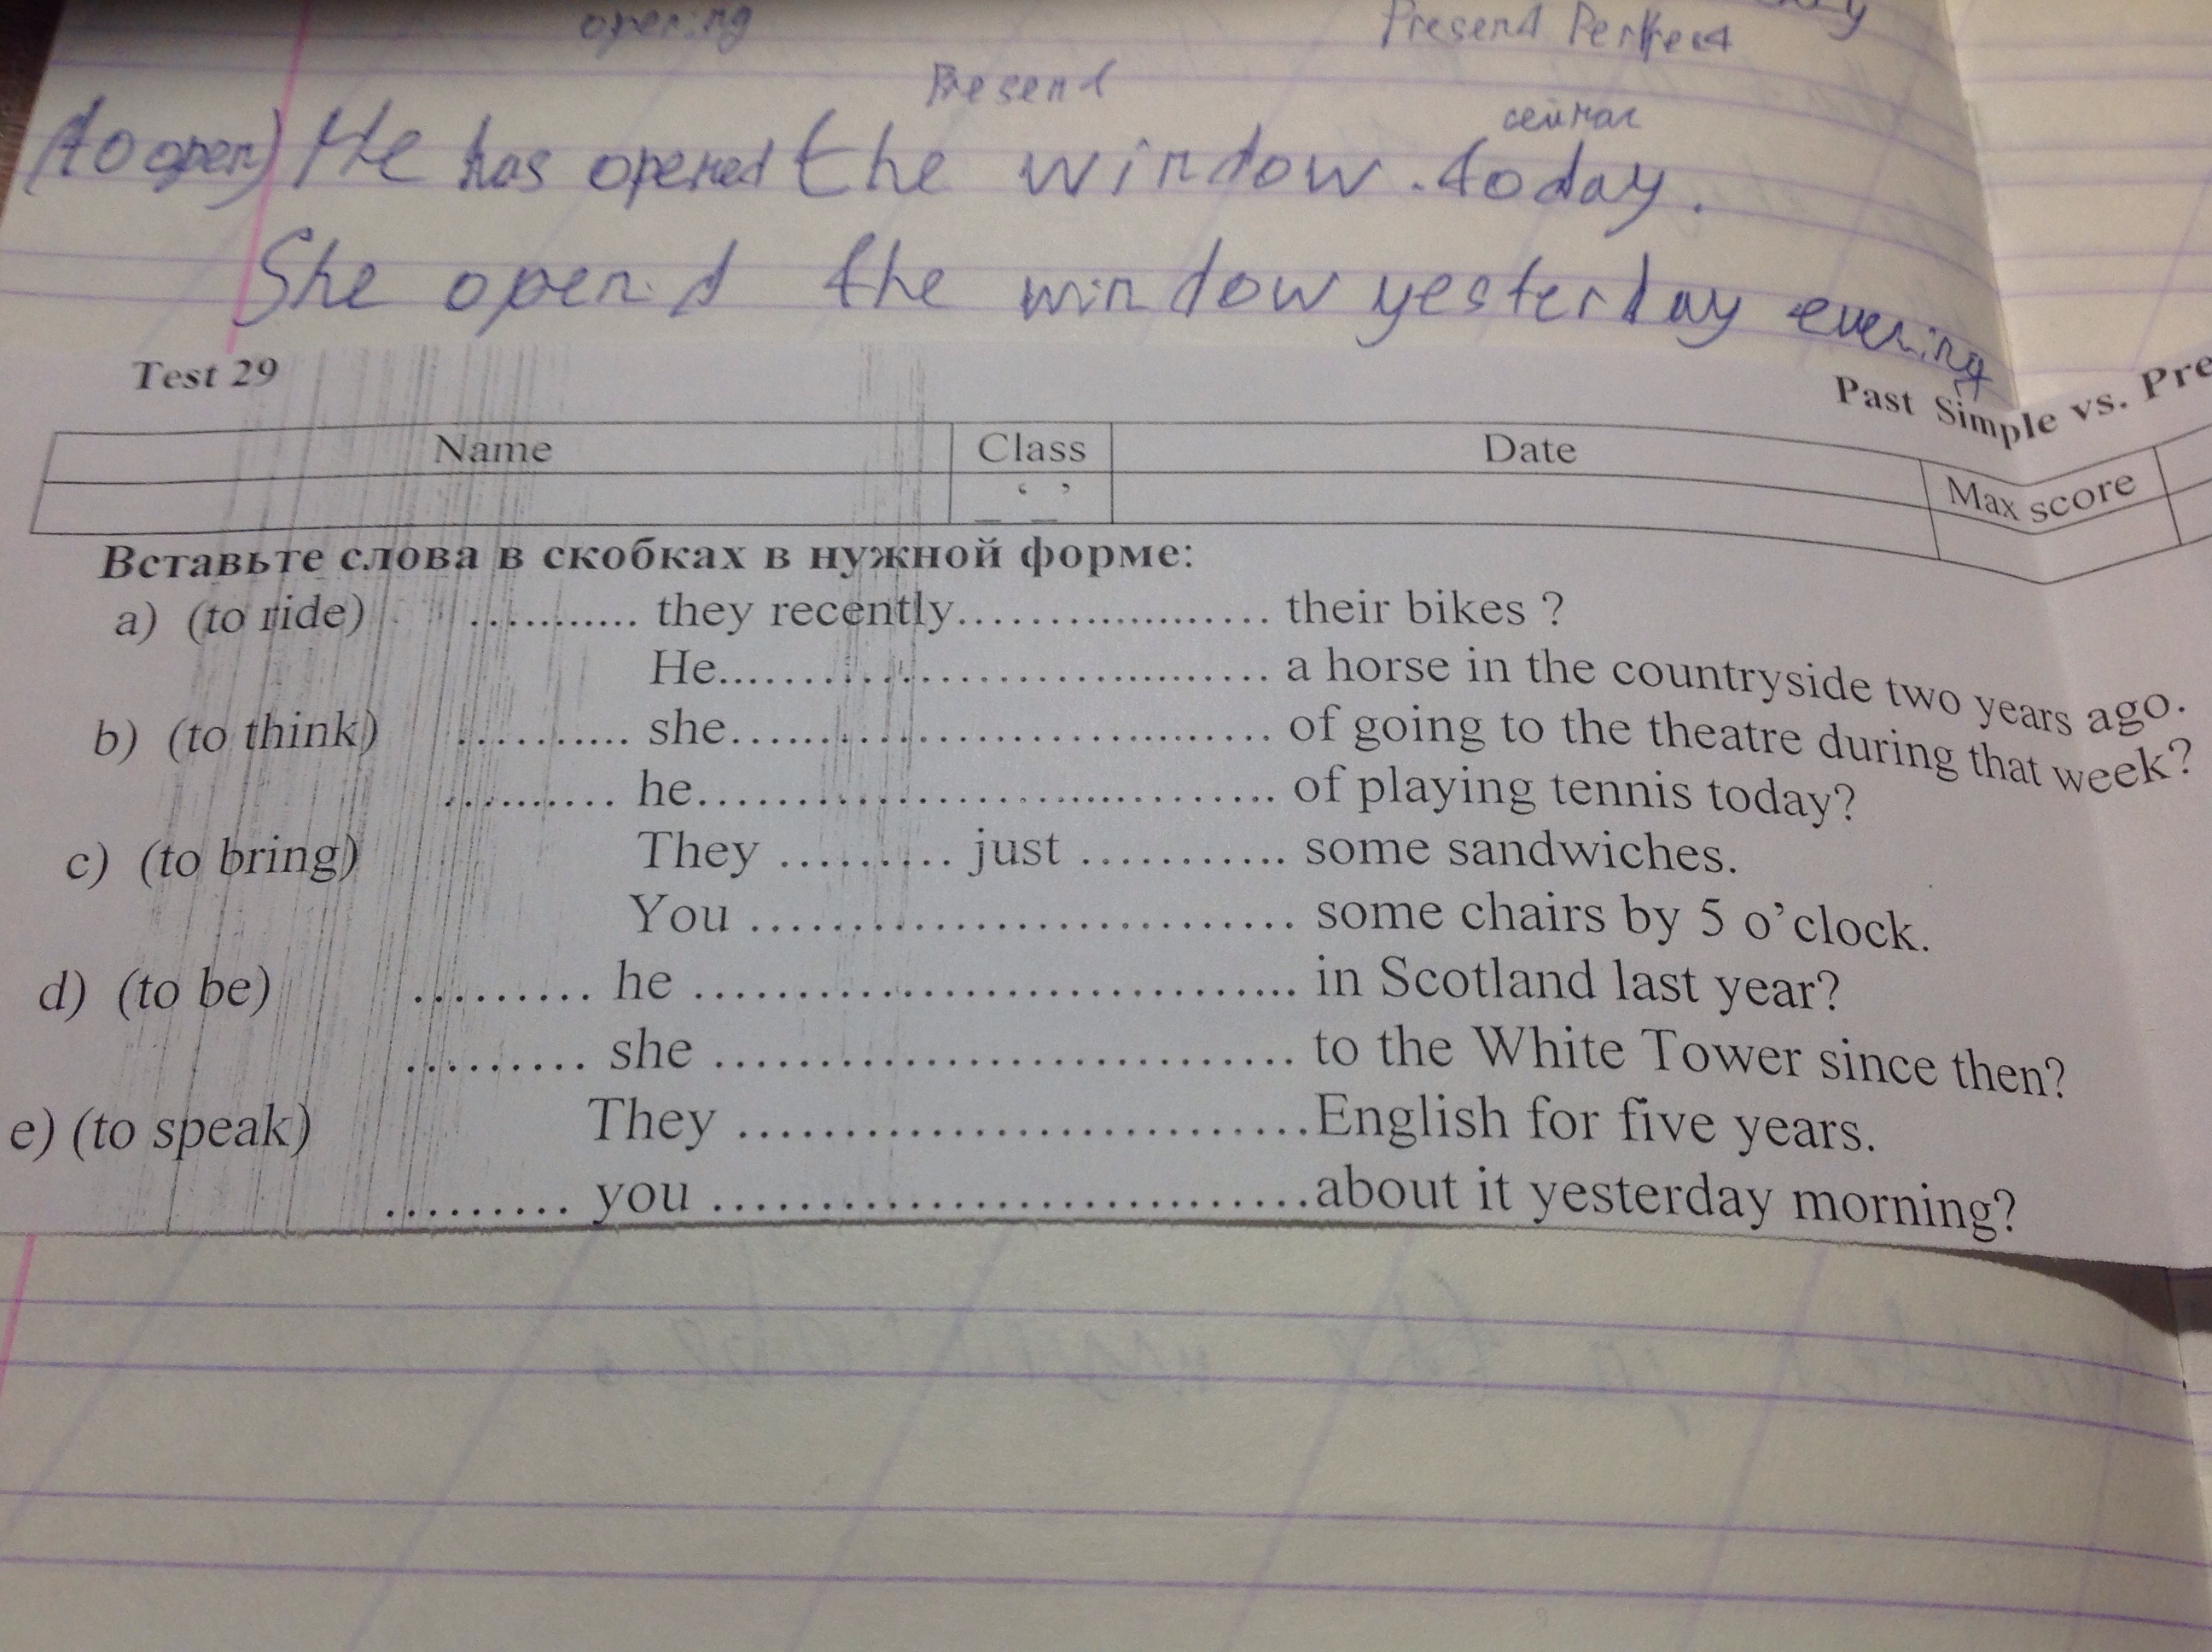 opening
Presend Perfect
Presend
сейчас
(to open) He has opened the window. today.
She opend the window yesterday evening
Test 29
Past Simple vs. Pre
Name Class Date Max score
‘ ’
_ _
Вставьте слова в скобках в нужной форме:
a) (to ride) ........... they recently...................... their bikes ?
He................................. a horse in the countryside two years ago.
b) (to think) ........... she................................ of going to the theatre during that week?
........... he.................................. of playing tennis today?
c) (to bring) They .......... just ............ some sandwiches.
You .............................. some chairs by 5 o’clock.
d) (to be) .......... he ................................. in Scotland last year?
.......... she ................................ to the White Tower since then?
e) (to speak) They ................................English for five years.
.......... you .................................about it yesterday morning?